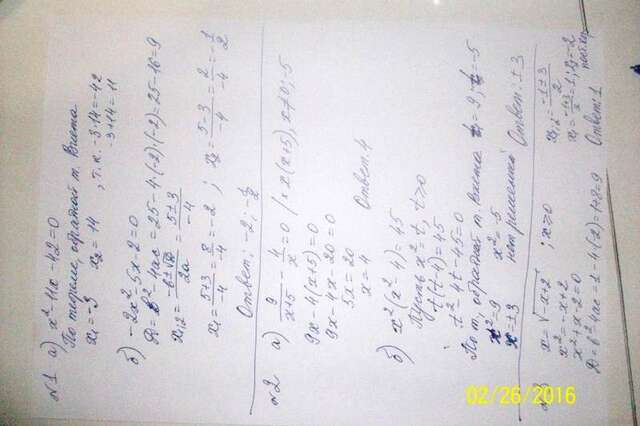 №1 а) x² - 11x - 42 = 0
По теореме, обратной т. Виета
x₁ = -3 x₂ = 14 , т.к. -3·14 = -42
-3+14 = 11
б) -2x² - 5x - 2 = 0
D = b² - 4ac = 25 - 4·(-2)·(-2) = 25 - 16 = 9
x₁,₂ = (-b ± √D)/2a = (5 ± 3)/-4
x₁ = (5+3)/-4 = 8/-4 = -2 ; x₂ = (5-3)/-4 = 2/-4 = -1/2
Ответ: -2; -1/2
№2 а) 9/(x+5) - 4/x = 0 / × x(x+5), x≠0; -5
9x - 4(x+5) = 0
9x - 4x - 20 = 0
5x = 20
x = 4 Ответ: 4
б) x²(x² - 4) = 45
Пусть x² = t, t>0
t(t-4) = 45
t² - 4t - 45 = 0
По т, обратной т. Виета t₁ = 9; t₂ = -5
x² = 9 x² = -5
x = ±3 нет решений Ответ: ±3
x = √-x+2 ; x≥0
x² = -x+2
x² + x - 2 = 0
D = b² - 4ac = 1 - 4·(-2) = 1+8 = 9
x₁,₂ = (-1±3)/2
x₁ = (-1+3)/2 = 1; x₂ = -2
Ответ: 1
02/26/2016